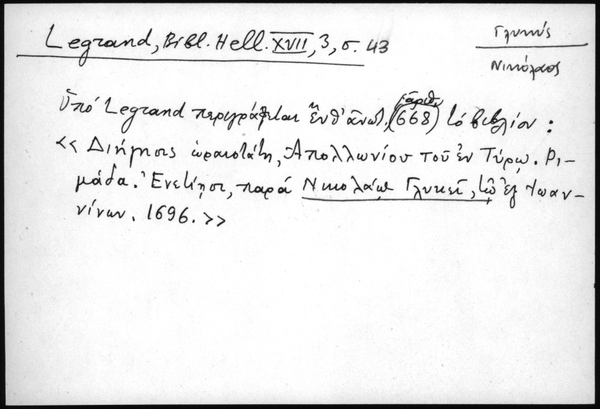 Legrand, Bibl. Hell. XVII, 3, σ. 43
Γλυκύς
Νικόλαος
Ὑπό Legrand περιγράφεται ἔνθ' ἀνωτ. (ἀριθ. 668) τό βιβλίον:
<< Διήγησις ὡραιοτάτη, Ἀπολλωνίου τοῦ ἐν Τύρῳ. Ρι-
μάδα. Ἐνετίησι, παρά Νικολάῳ Γλυκεῖ, τῷ ἐξ Ἰωαν-
νίνων. 1696. >>